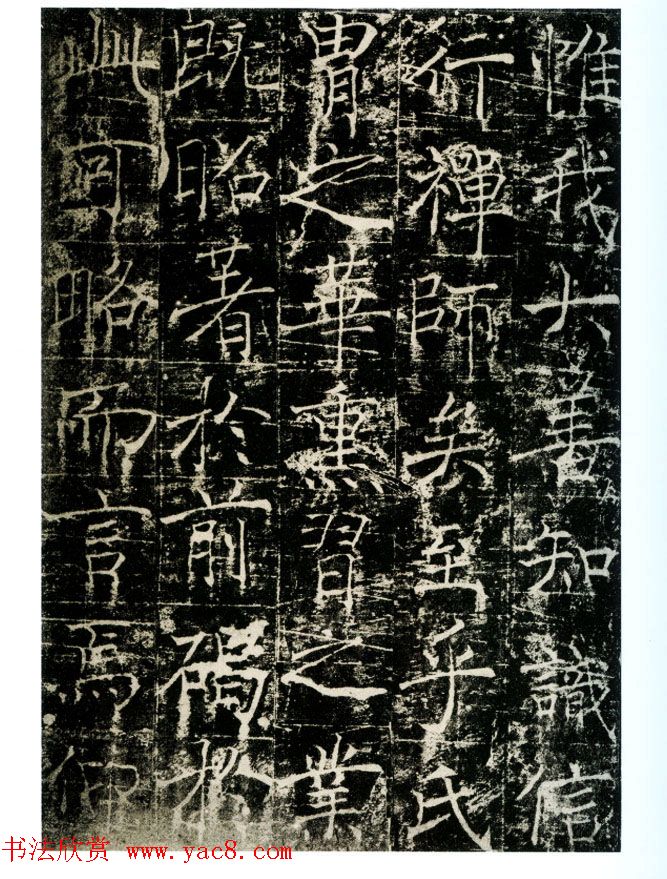 惟我大善知識信
行禪師矣至乎氏
胄之華熏習之業
既昭著於前碣於
此可略而言焉仰
书法欣赏 www.yac8.com